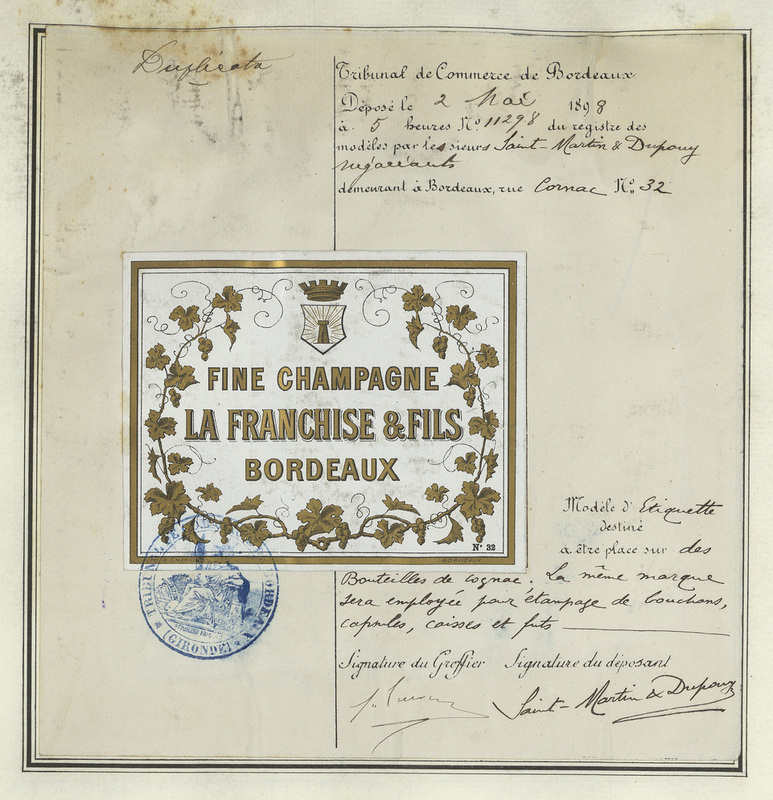 Duplicata
Tribunal de Commerce de Bordeaux
Déposé le 2 Mai 1898
à 5 heures N° 11298 du registre des
modèles par les sieurs Saint-Martin & Dupouy
négociants
demeurant à Bordeaux, rue Cornac N° 32
FINE CHAMPAGNE
LA FRANCHISE & FILS
BORDEAUX
N° 32
BORDEAUX
Modèle d'Etiquette
destiné
a être place sur des
Bouteilles de cognac. La même marque
sera employée pour étampage de bouchons,
capsules, caisses et futs
TRIBUNAL DE BORDEAUX
(GIRONDE)
Signature du Greffier Signature du déposant
Saint-Martin & Dupouy